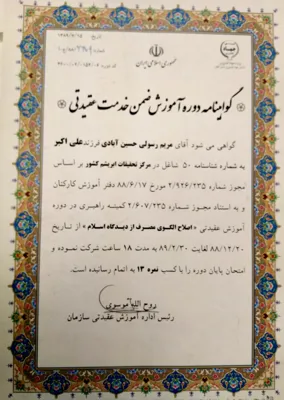 جمهوری اسلامی ایران
تاریخ: ۱۳۸۹/۶/۱۵
شماره:
گواهینامه دوره آموزش ضمن خدمت عقیدتی
گواهی می شود آقای مریم رسولی حسین آبادی فرزند علی اکبر
به شماره شناسنامه ۵۰ شاغل در مرکز تحقیقات ابریشم کشور بر اساس
مجوز شماره ۲/۹۲۶/۲۳۵ مورخ ۸۸/۶/۱۷ دفتر آموزش کارکنان
و به استناد مجوز شماره ۲/۶۰۷/۲۳۵ کمیته راهبری در دوره
آموزش عقیدتی «اصلاح الگوی مصرف از دیدگاه اسلام» از تاریخ
۸۸/۱۲/۲۰ لغایت ۸۹/۲/۳۰ به مدت ۱۸ ساعت شرکت نموده و
امتحان پایان دوره را با کسب نمره ۱۳ به اتمام رسانیده است.
روح اللّه موسوی
رئیس اداره آموزش عقیدتی سازمان